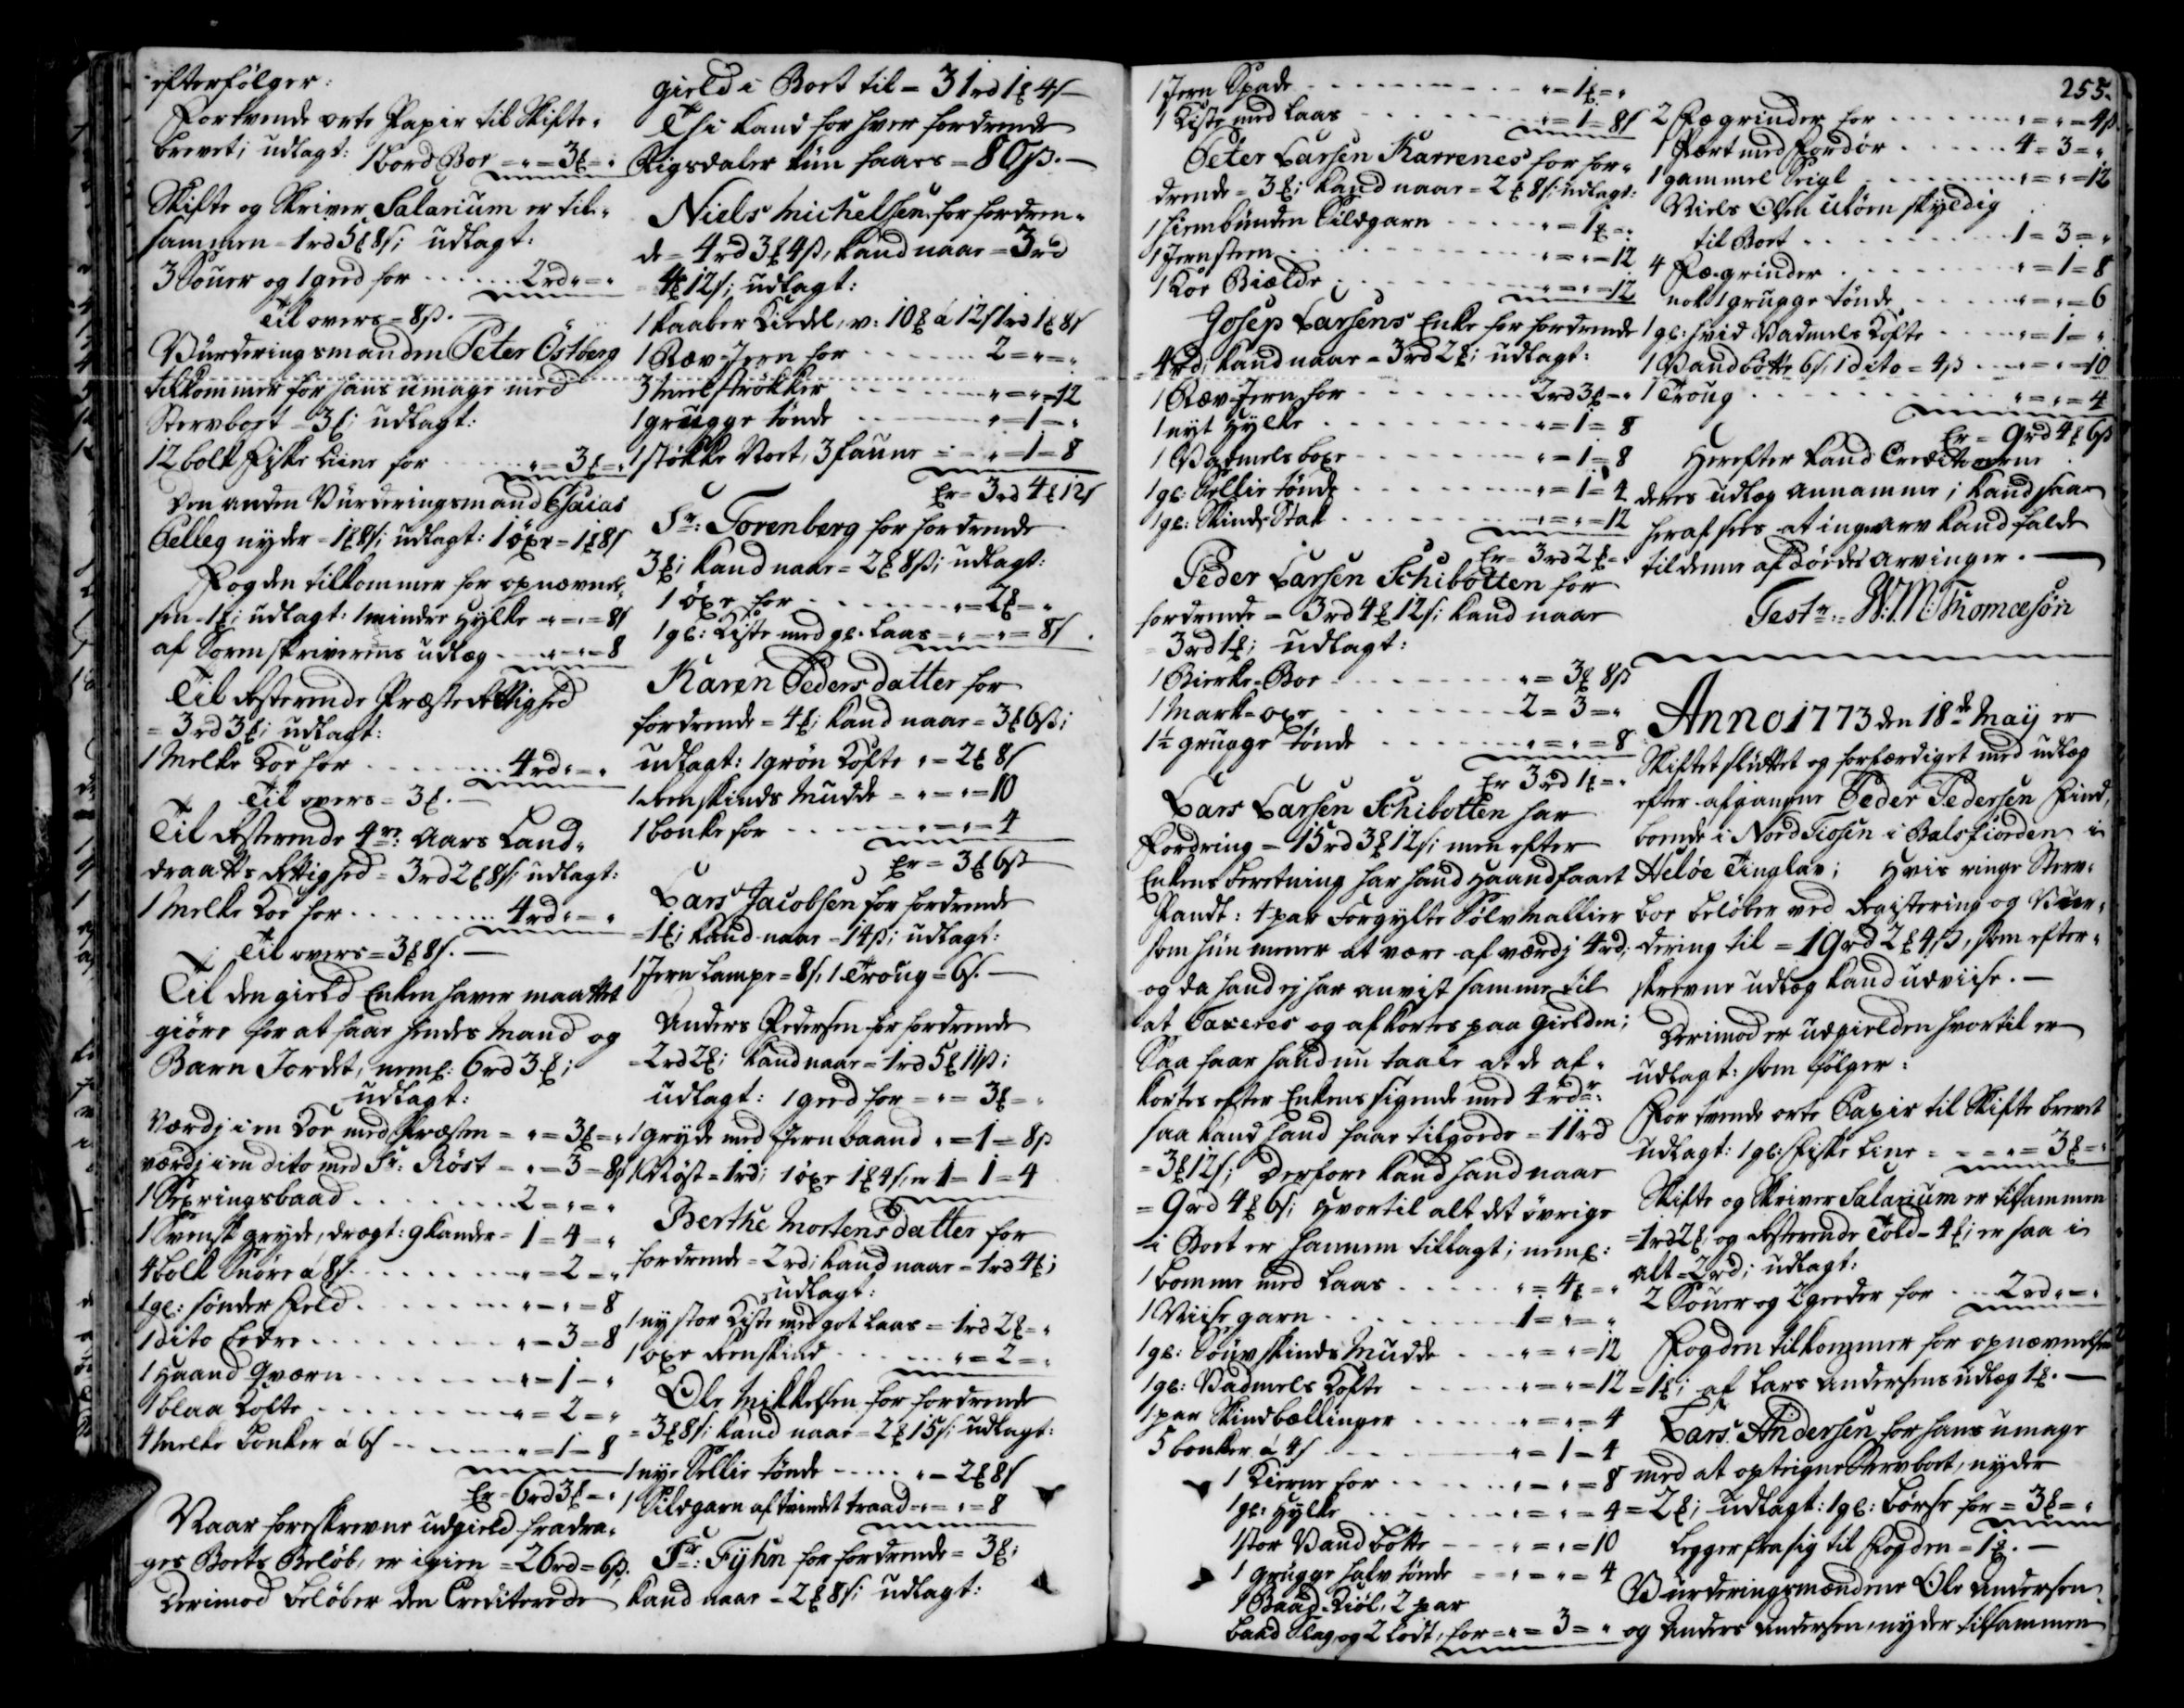 efterfölger:
Fortvende orte Papir til Skifte-
brevet; udlagt: 1 bord Boe = „ = 3 ℔ = „
Skifte og Skriver Salarium er til-
sammen = 1 rd 5 ℔ 8 s; udlagt:
3 Souer og 1 geed for ...... 2 rd „ = „
Til overs = 8 s. —
Vurderingsmanden Peter Östberg
tilkommer for hans umage med
Stervboet = 3 ℔; udlagt:
12 bolt Fiske Liine for ...... „ = 3 ℔ = „
Den anden Vurderingsmand Esaias
Pelleg nyder = 1 ℔ 8 s; udlagt: 1 öxe = 1 ℔ 8 s
Fogden tilkommer for opnævnel-
sen = 1 ℔; udlagt: 1 mindre Hylke = „ = 8 s
af Sorenskriverens udlæg ... „ = „ = 8
Til Resterende Præste Rettighed
= 3 rd 3 ℔; udlagt:
1 Melke Koe for ...... 4 rd „ = „
Til overs = 3 ℔. —
Til Resterende 4re Aars Land-
draatts Rettighed = 3 rd 2 ℔ 8 s; udlagt:
1 Melke Koe for ...... 4 rd „ = „
Til overs = 3 ℔ 8 s. —
Til den gield Enken haver maattet
giöre for at faae hendes Mand og
Barn Jordet, neml: 6 rd 3 ℔;
udlagt:
Værdj i en Koe med Præsten = „ = 3 ℔ = „
værdj i en dito med Sr: Röst = „ = 3 = 8 s
1 Sexringsbaad ...... 2 = „ = „
1 Svensk gryde, drægt: 9 kander = 1 = 4 = „
4 bolt Snöre á 8 s ...... „ = 2 = „
1 gl: sönder Feld ...... „ = „ = 8
1 dito bedre ...... „ = 3 = 8
1 Haand Qværn ...... „ = 1 = „
1 blaa Kofte ...... „ = 2 = „
4 Melke bonker á 6 s ...... „ = 1 = 8
Er = 6 rd 3 ℔ = „
Naar foreskrevne udgield fradra-
ges Boets Beløb, er igien = 26 rd = 6 s;
Derimod beløber den Crediterede
gield i Boet til = 31 rd 1 ℔ 4 s —
Thi kand for hver fordrende
Rigsdaler kun faaes = 80 s. —
Niels Michelsen for fordren-
de = 4 rd 3 ℔ 4 s, kand naae = 3 rd
4 ℔ 12 s; udlagt:
1 kaaber Kiedel, v: 10 ℔ á 12 s 1 rd 1 ℔ 8 s
1 Ræv-Jern for ...... 2 = „ = „
3 Meelströkker ...... „ = „ = 12
1 grugge tönde ...... „ = 1 = „
1 stökke Noet, 3 faune ...... „ = 1 = 8
Er = 3 rd 4 ℔ 12 s
Sr: Torenberg for fordrende
3 ℔; kand naae = 2 ℔ 8 s; udlagt:
1 öxe for ...... „ = 2 ℔ = „
1 gl: Kiste med gl. Laas = „ = „ = 8 s.
Karen Pedersdatter for
fordrende = 4 ℔; kand naae = 3 ℔ 6 s;
udlagt: 1 grön Kofte „ = 2 ℔ 8 s
1 Reenskinds Mudde = „ = „ = 10
1 bonke for ...... „ = „ = 4
Er = 3 ℔ 6 s
Lars Jacobsen for fordrende
= 1 ℔; kand naae = 14 s; udlagt:
1 Jern Lampe = 8 s, 1 Troug = 6 s. —
Anders Pedersen for fordrende
= 2 rd 2 ℔; kand naae = 1 rd 5 ℔ 11 s;
udlagt: 1 geed for = „ = 3 ℔ = „
1 gryde med Jernbaand „ = 1 = 8 s
1 Röst = 1 rd; 1 öxe 1 ℔ 4 s, er 1 = 1 = 4
Berthe Mortensdatter for
fordrende = 2 rd; kand naae = 1 rd 4 ℔;
udlagt:
1 ny stor Kiste med got Laas = 1 rd 2 ℔ = „
1 oxe Reenskind ...... „ = 2 = „
Ole Mikkelsen for fordrende
= 3 ℔ 8 s; kand naae = 2 ℔ 15 s; udlagt:
1 nye Sellie tönde ...... „ = 2 ℔ 8 s
1 Sildgarn af tvindet traad = „ = „ = 8
Sr: Fyhn for fordrende = 3 ℔;
kand naae = 2 ℔ 8 s; udlagt:
1 Jern Spade ...... „ = 1 ℔ = „
1 Kiste med Laas ...... „ = 1 = 8 s
Peter Larsen Karrenes for for-
drende = 3 ℔; kand naae = 2 ℔ 8 s; udlagt:
1 hiembunden Sildgarn ...... „ = 1 ℔ = „
1 Jernsteen ...... „ = „ = 12
1 Koe Bielde ...... „ = „ = 12
Josep Larsens Enke for fordrende
= 4 rd; kand naae = 3 rd 2 ℔; udlagt:
1 Ræv-Jern for ...... 2 rd 3 ℔ = „
1 nyt Hylke ...... „ = 1 = 8
1 Vadmels boxe ...... „ = 1 = 8
1 gl: Sellie tönde ...... „ = 1 = 4
1 gl: Skinds Stak ...... „ = „ = 12
Er = 3 rd 2 ℔ = „
Peder Larsen Schibotten for
fordrende = 3 rd 4 ℔ 12 s; kand naae
= 3 rd 1 ℔; udlagt:
1 Bierke-Boe ...... „ = 3 ℔ 8 s
1 Mark-oxe ...... 2 = 3 = „
1 ½ grugge tönde ...... „ = „ = 8
Er 3 rd 1 ℔ = „
Lars Larsen Schibotten har
Fordring = 15 rd 3 ℔ 12 s; men efter
Enkens beretning har hand haandfaaet
Pandt: 4 par Forgylte Sölv Mallier
som hun mener at være af værdj 4 rd;
og da hand ej har anvist samme til
at Taxeres og afkortes paa Gielden;
Saa faar hand nu taale at de af-
kortes efter Enkens sigende med 4 rdr:
saa kand hand faae tilgode = 11 rd
= 3 ℔ 12 s; Derfore kand hand naae
= 9 rd 4 ℔ 6 s; Hvortil alt det övrige
i Boet er hannem tillagt; neml:
1 bomme med Laas ...... „ = 4 ℔ = „
1 Viise garn ...... 1 = „ = „
1 gl: Souvskinds Mudde ...... „ = „ = 12
1 gl: Vadmels Kofte ...... „ = „ = 12
1 par Skindbællinger ...... „ = „ = 4
5 bonker á 4 s ...... „ = 1 = 4
1 Kierne for ...... „ = „ = 8
1 gl: Hylke ...... „ = „ = 4
1 stor Vand bötte ...... „ = „ = 10
1 grugge halv tönde = „ = „ = 4
1 Baad-Kiöl, 2 par
baad Slag og 2 Lodt, for = „ = 3 = „
255.
2 Fægrinder for ...... „ = „ = 4 s.
1 Port med Fordör ...... 4 = 3 = „
1 gammel Seigl ...... „ = „ = 12
Niels Olsen Ulöen skyldig
til Boet ...... 1 = 3 = „
4 Fægrinder ...... „ = 1 = 8
nok 1 grugge tönde ...... „ = „ = 6
1 gl: hvid Vadmels Kofte ...... „ = 1 = „
1 Vandbötte 6 s, 1 dito = 4 s ...... „ = „ = 10
1 Troug ...... „ = „ = 4
Er = 9 rd 4 ℔ 6 s
Herefter kand Creditorerne
deres udlæg annamme; kand saa
heraf sees at ingen arv kand falde
til denne afdödes arvinger. —
Test: W: M: Thomæsön
Anno 1773 den 18de May er
Skiftet sluttet og forfærdiget med udlæg
efter afgangne Peder Pedersen Find,
boende i Nord Fiosen i Balsfiorden i
Helöe Tinglav; Hvis ringe Sterv-
boe beløber ved Registering og Vur-
dering til = 19 rd 2 ℔ 4 s, som efter-
skrevne udlæg kand udviise. —
Derimod er udgielden hvortil er
udlagt: som fölger:
For tvende orte Papir til Skifte brevet
udlagt: 1 gl: Fiske Line = „ = 3 ℔ = „
Skifte og Skriver Salarium er tilsammen
= 1 rd 2 ℔, og Resterende Told = 4 ℔; er saa i
alt = 2 rd; udlagt:
2 Souer og 2 geeder for ... 2 rd „ = „
Fogden tilkommer for opnævnelsen
= 1 ℔; af Lars Andersens udlæg 1 ℔. —
Lars Andersen for hans umage
med at optegne Stervboet, nyder
= 2 ℔; udlagt: 1 gl: börse for = 3 ℔ = „
Legger fra sig til Fogden = 1 ℔. —
Vurderingsmændene Ole Andersen
og Anders Andersen, nyder tilsammen